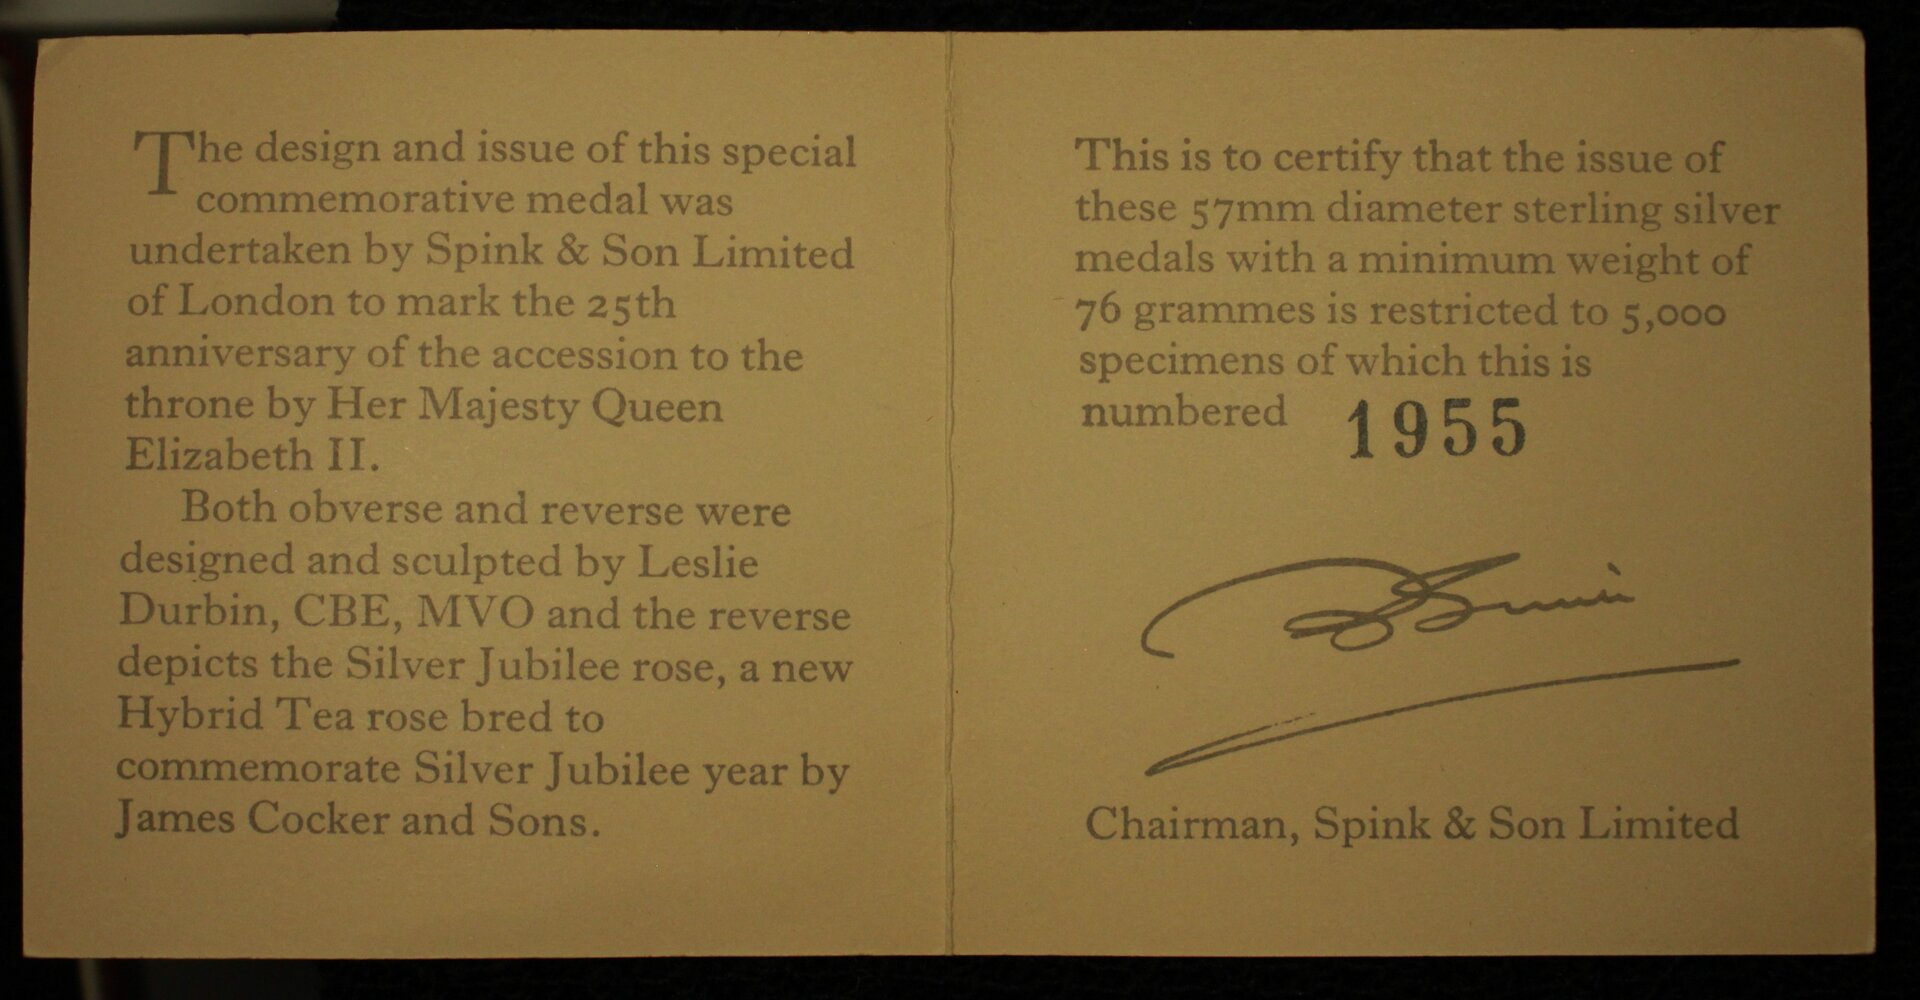 The design and issue of this special
commemorative medal was
undertaken by Spink & Son Limited
of London to mark the 25th
anniversary of the accession to the
throne by Her Majesty Queen
Elizabeth II.
Both obverse and reverse were
designed and sculpted by Leslie
Durbin, CBE, MVO and the reverse
depicts the Silver Jubilee rose, a new
Hybrid Tea rose bred to
commemorate Silver Jubilee year by
James Cocker and Sons.
This is to certify that the issue of
these 57mm diameter sterling silver
medals with a minimum weight of
76 grammes is restricted to 5,000
specimens of which this is
numbered 1955
Chairman, Spink & Son Limited